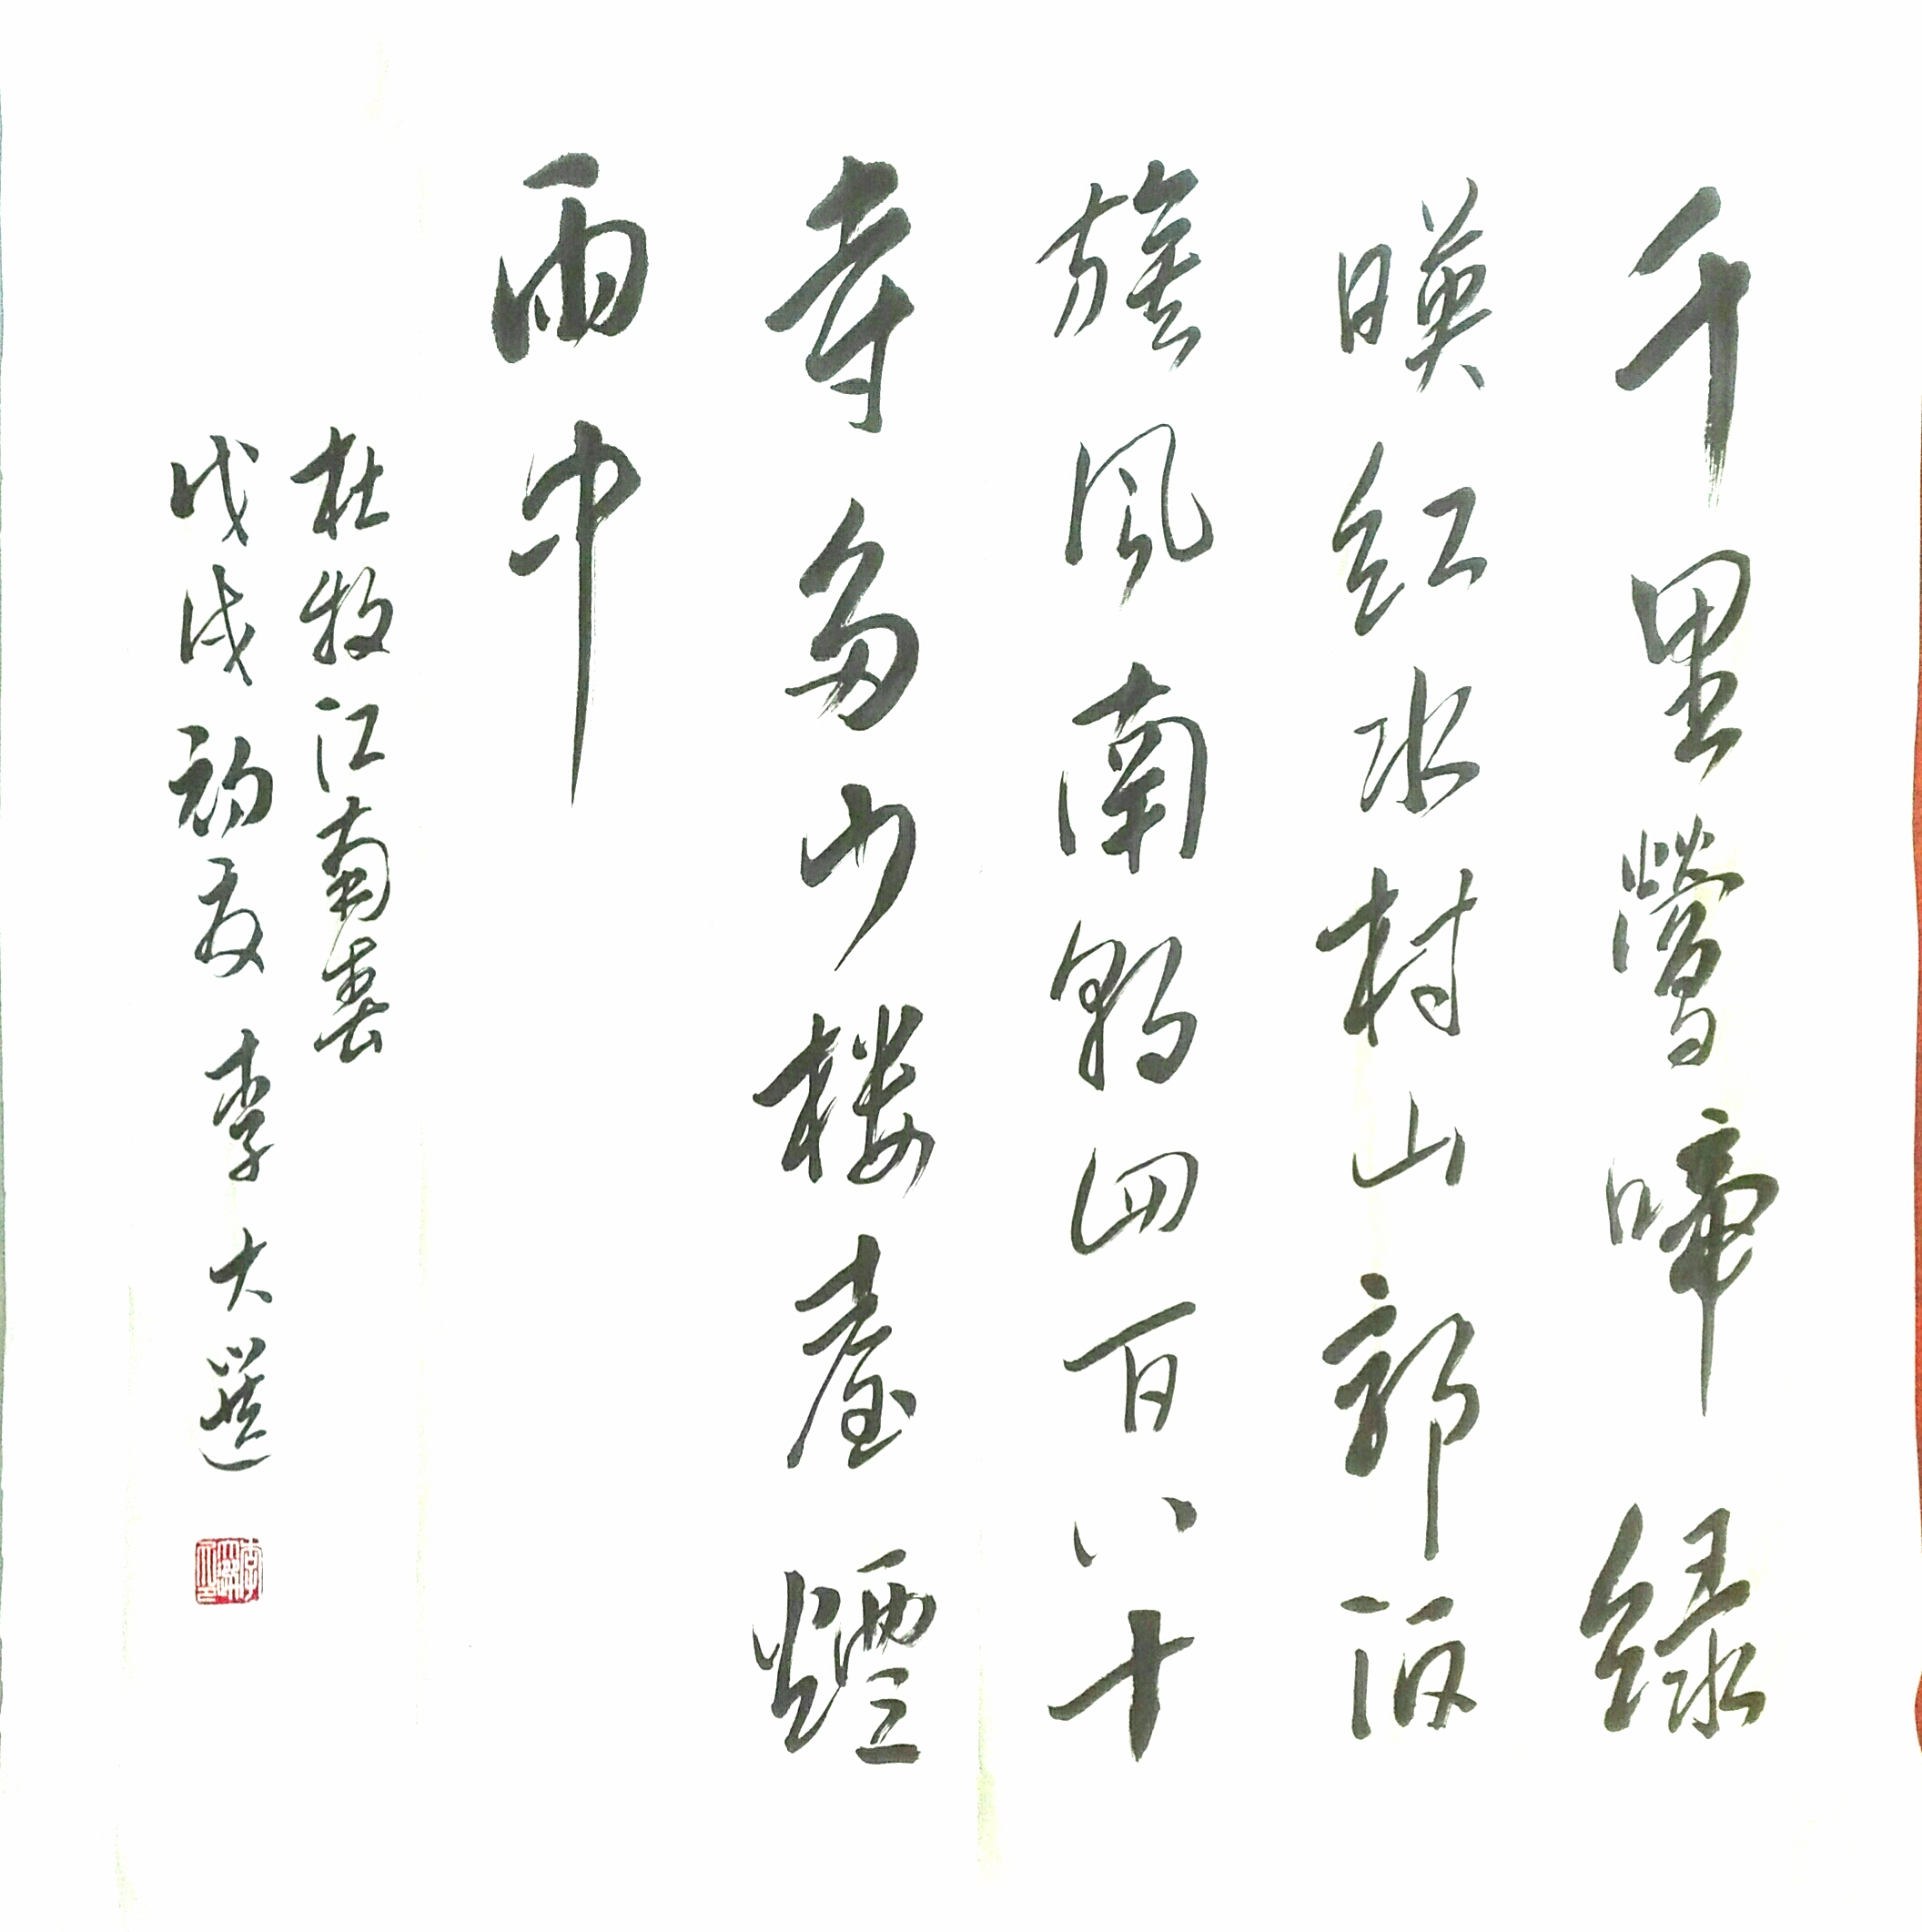 千里鶯啼綠
暎紅水村山郭酒
旗風南朝四百八十
寺多少楼臺煙
雨中
杜牧江南春
戊戌初夏 李大選